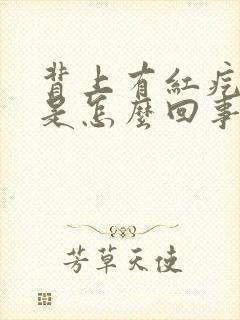 背上有紅疙
是怎麼回事
芳草天使